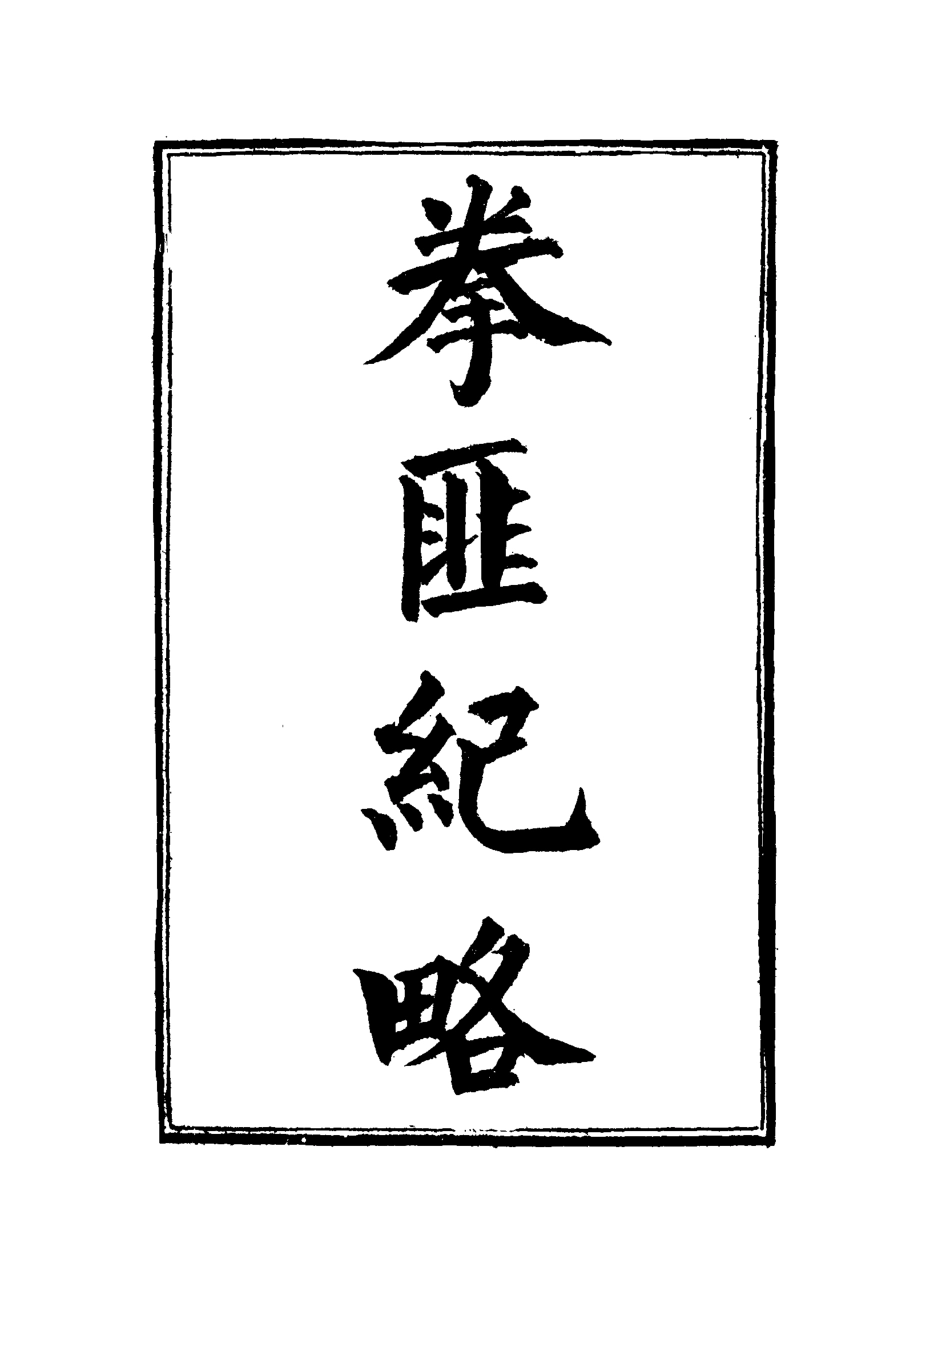 拳匪紀略